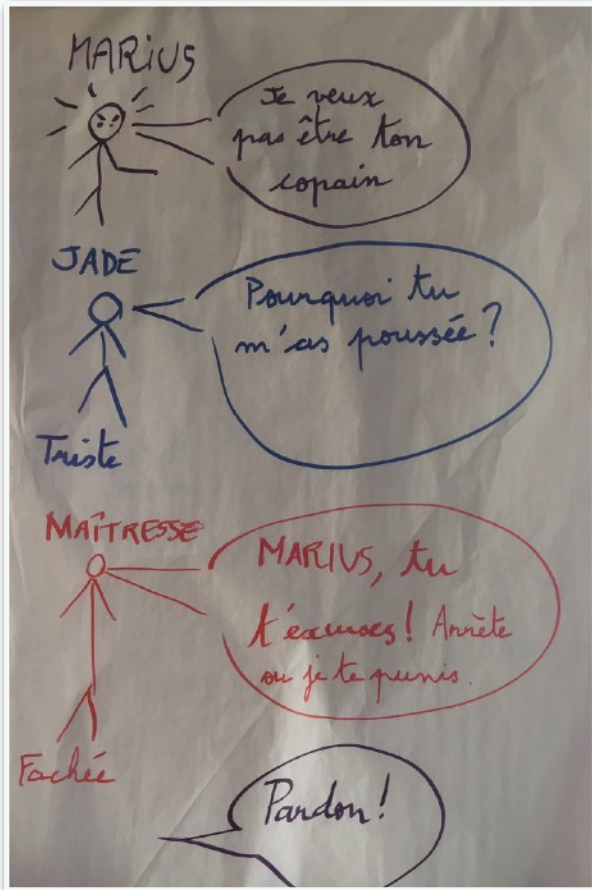 MARIUS
Je veux
pas être ton
copain
JADE
Pourquoi tu
m'as poussée ?
Triste
MAÎTRESSE
MARIUS, tu
t'excuses ! Arrête
ou je te punis.
Fachée
Pardon !